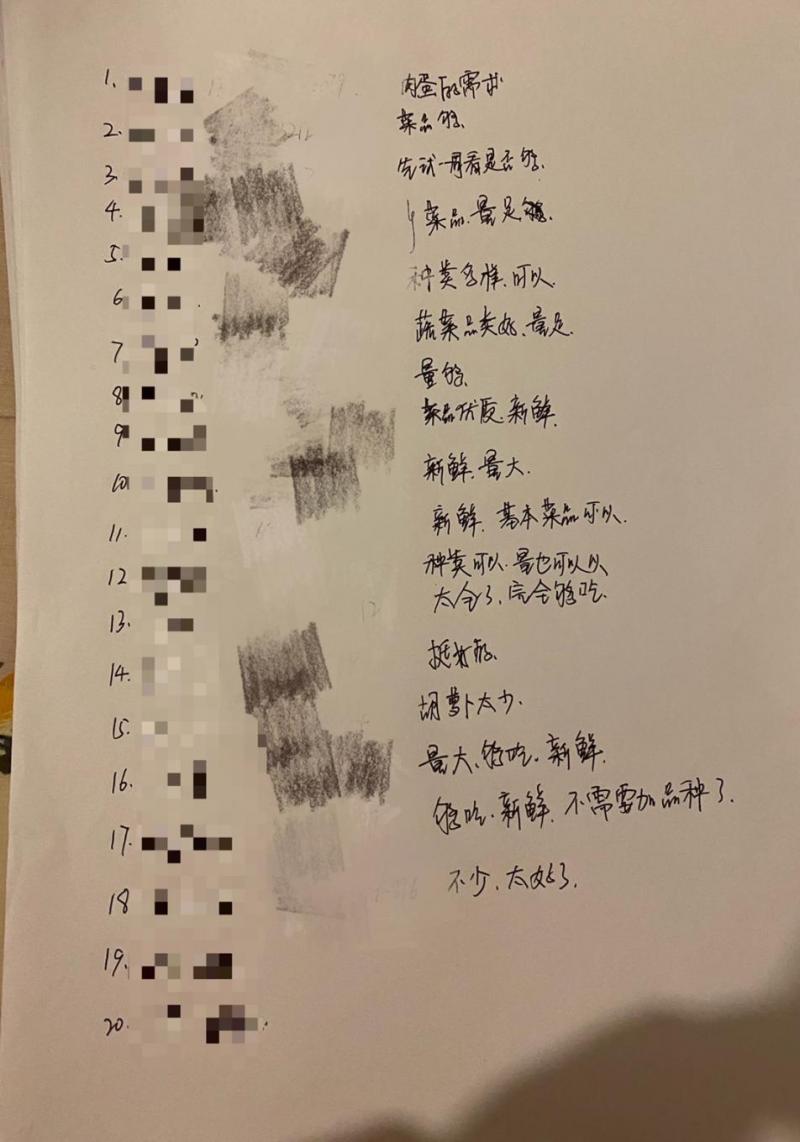 1. 肉蛋的需求
2. 菜品够.
3. 先试一周看是否够.
4. 菜品.量足够.
5. 种类多样.可以.
6. 蔬菜品类好.量足.
7 量够.
8 菜品优质.新鲜.
9 新鲜.量大.
10 新鲜.基本菜品可以.
11. 种类可以.量也可以
12 太全了.完全够吃.
13. 挺好的.
14. 胡萝卜太少.
15. 量大.够吃.新鲜.
16. 够吃.新鲜.不需要加品种了.
17. 不少.太好了.
18
19.
20.